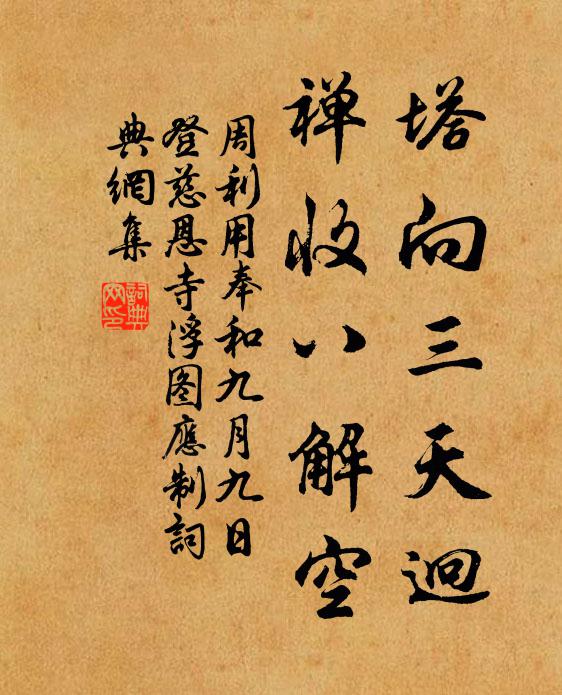 塔向三天迥
禅收八解空
周利用奉和九月九日
登慈恩寺浮图應制詞
典網集
詞典网印